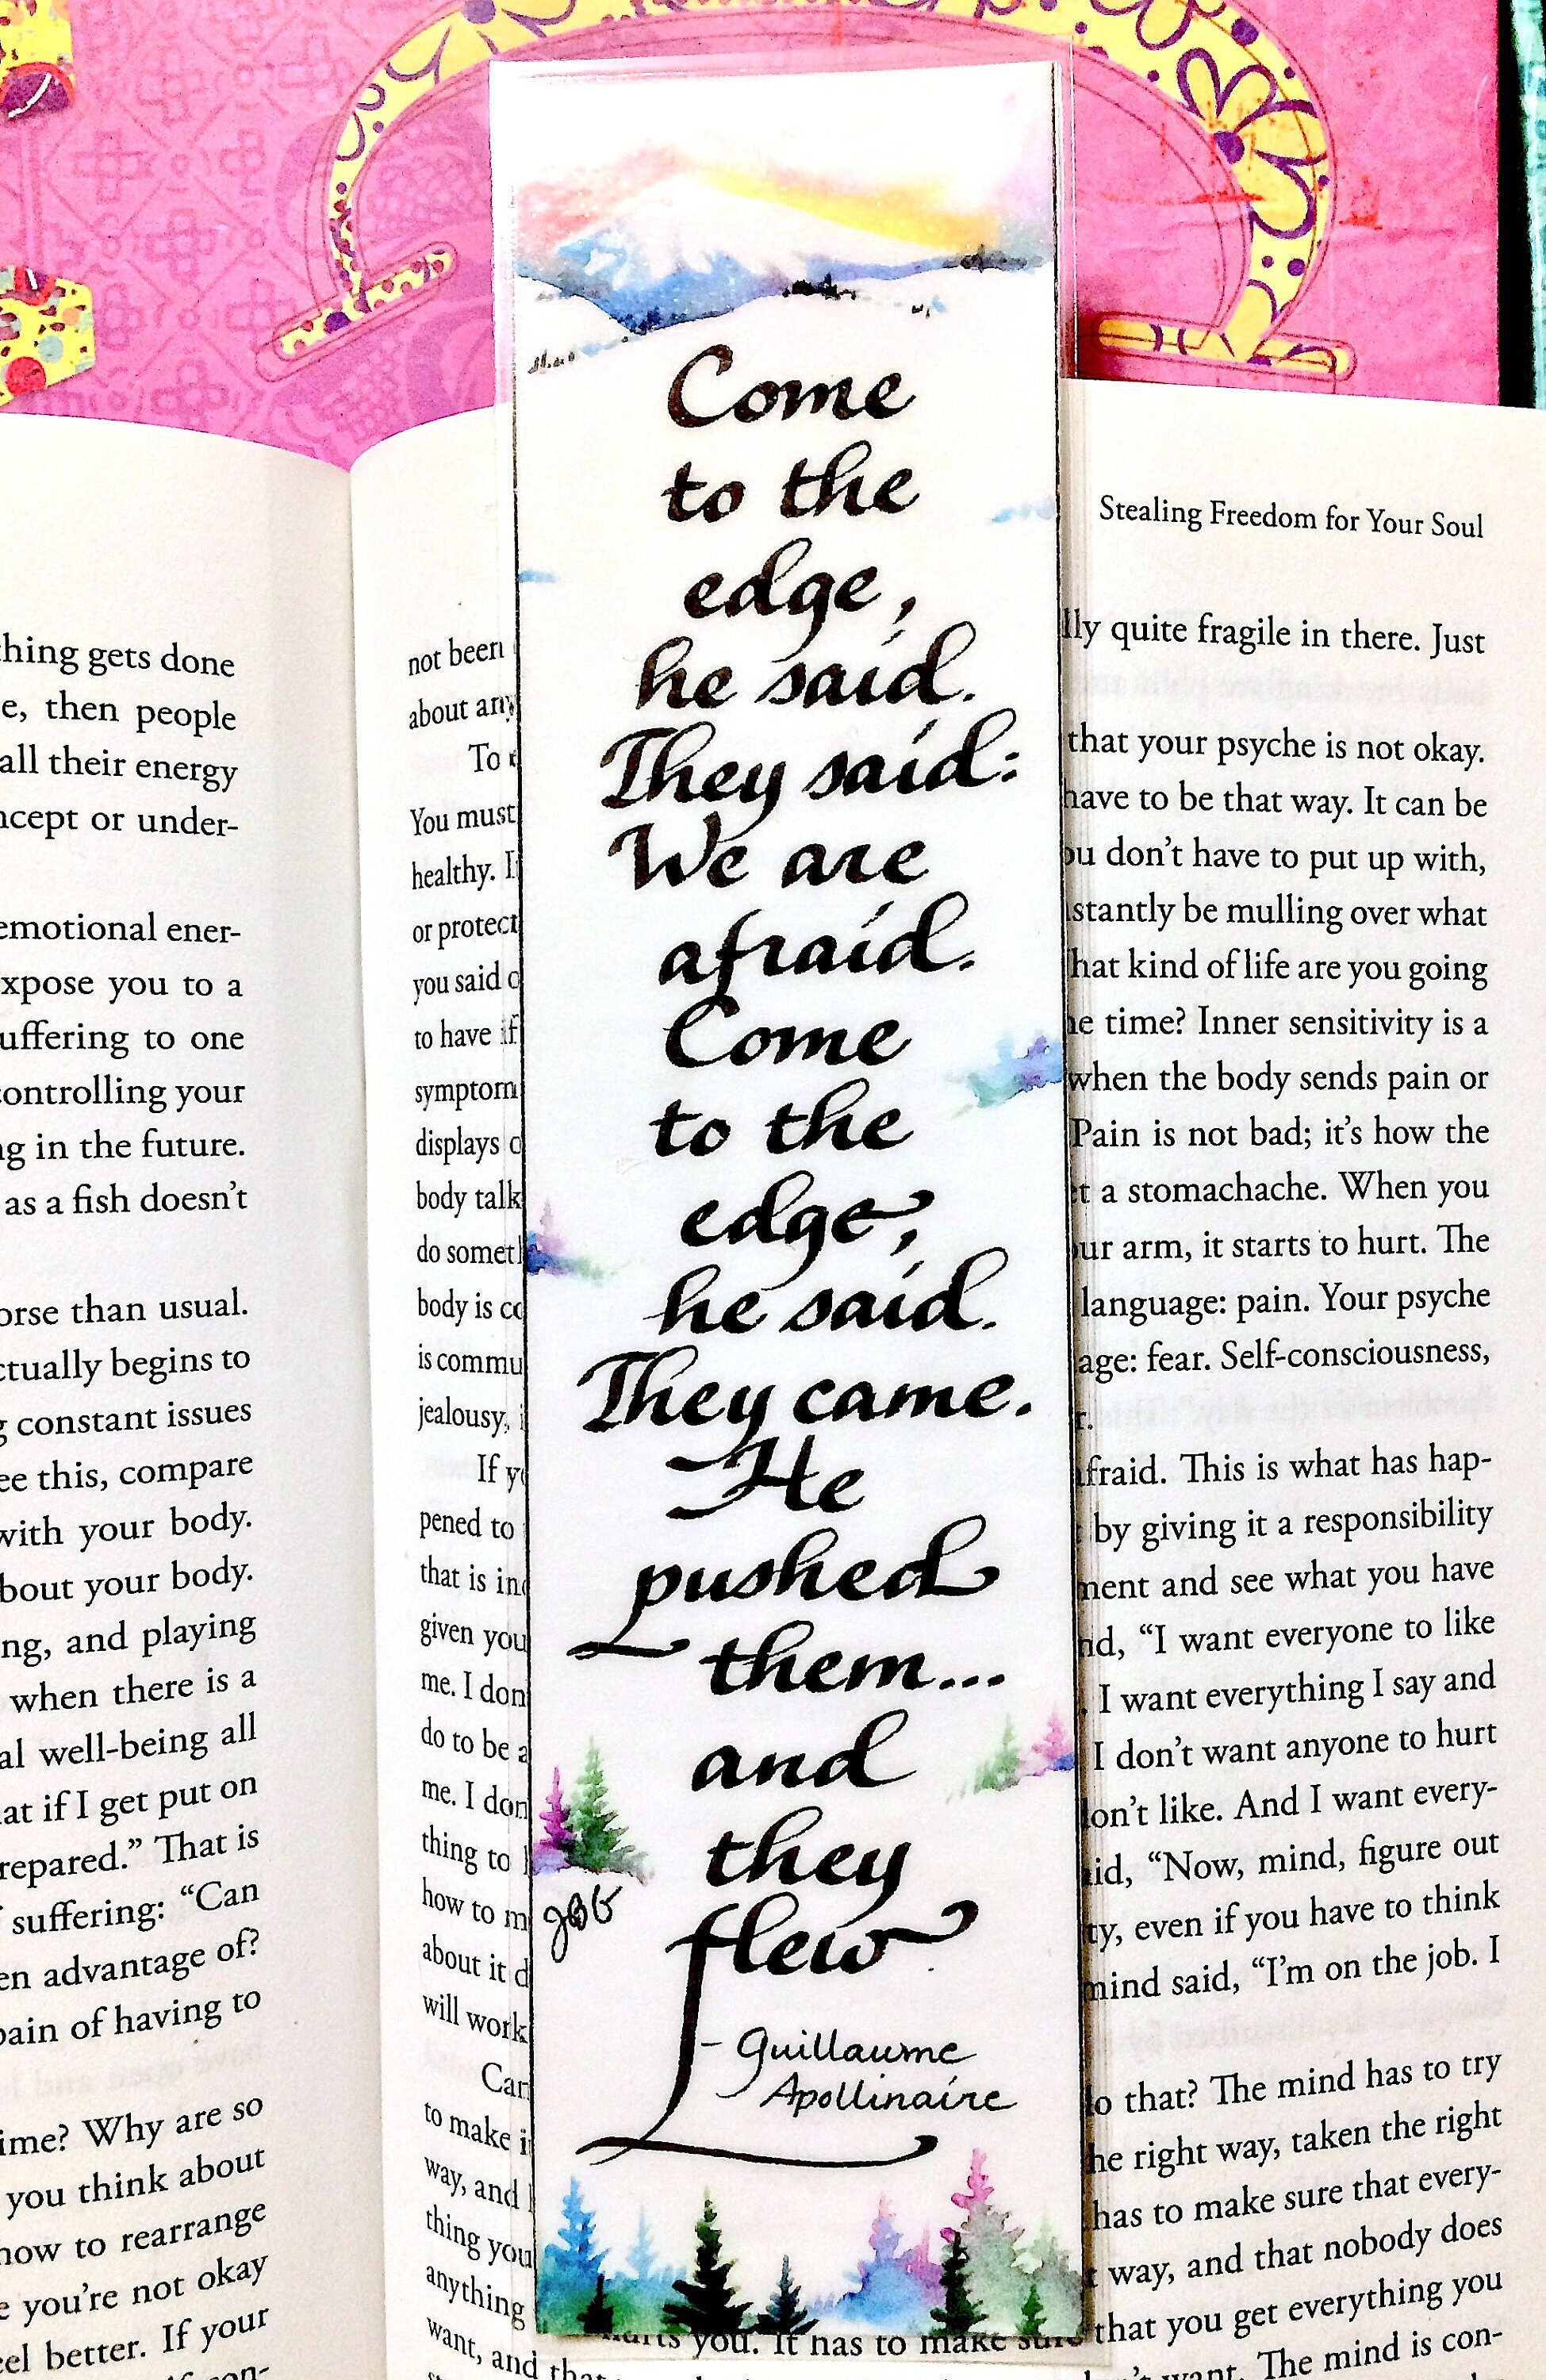 thing gets done
e, then people
all their energy
ncept or under-
emotional ener-
xpose you to a
uffering to one
controlling your
ng in the future.
as a fish doesn't
orse than usual.
ctually begins to
g constant issues
ee this, compare
with your body.
bout your body.
ng, and playing
when there is a
al well-being all
at if I get put on
repared.” That is
f suffering: “Can
en advantage of?
pain of having to
ime? Why are so
you think about
how to rearrange
e you're not okay
eel better. If your
con-
not been
about any
To
You must
healthy. I
or protect
you said o
to have if
symptom
displays o
body talk
do somet
body is co
is commu
jealousy,
If y
pened to
that is in
given you
me. I don
do to be a
me. I don
thing to
how to m
about it d
will work
Can
to make i
way, and
thing you
anything
want, and that
Come
to the
edge,
he said.
They said:
We are
afraid.
Come
to the
edge,
he said.
They came.
He
pushed
them...
and
they
flew
- Guillaume
Apollinaire
Stealing Freedom for Your Soul
lly quite fragile in there. Just
that your psyche is not okay.
have to be that way. It can be
ou don't have to put up with,
nstantly be mulling over what
hat kind of life are you going
e time? Inner sensitivity is a
when the body sends pain or
Pain is not bad; it's how the
t a stomachache. When you
our arm, it starts to hurt. The
language: pain. Your psyche
age: fear. Self-consciousness,
r.
afraid. This is what has hap-
by giving it a responsibility
ment and see what you have
nd, “I want everyone to like
I want everything I say and
I don't want anyone to hurt
don't like. And I want every-
aid, “Now, mind, figure out
ty, even if you have to think
mind said, “I'm on the job. I
do that? The mind has to try
he right way, taken the right
has to make sure that every-
way, and that nobody does
hurts you. It has to make sure that you get everything you
don't want. The mind is con-